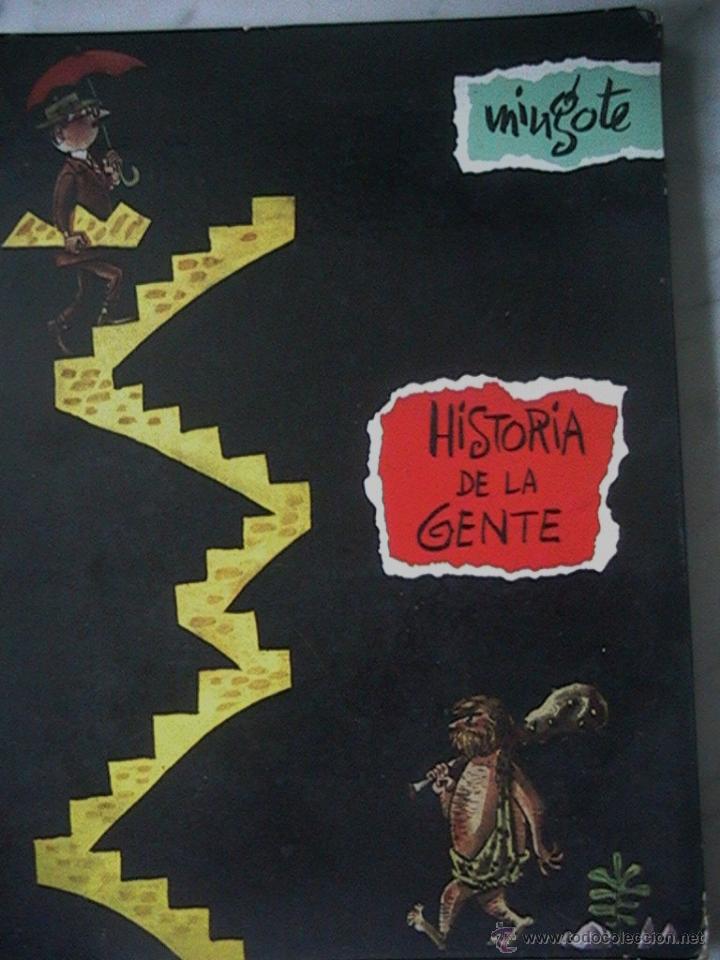 mingote
HiSTORiA
DE LA
GENTE
© www.todocoleccion.net